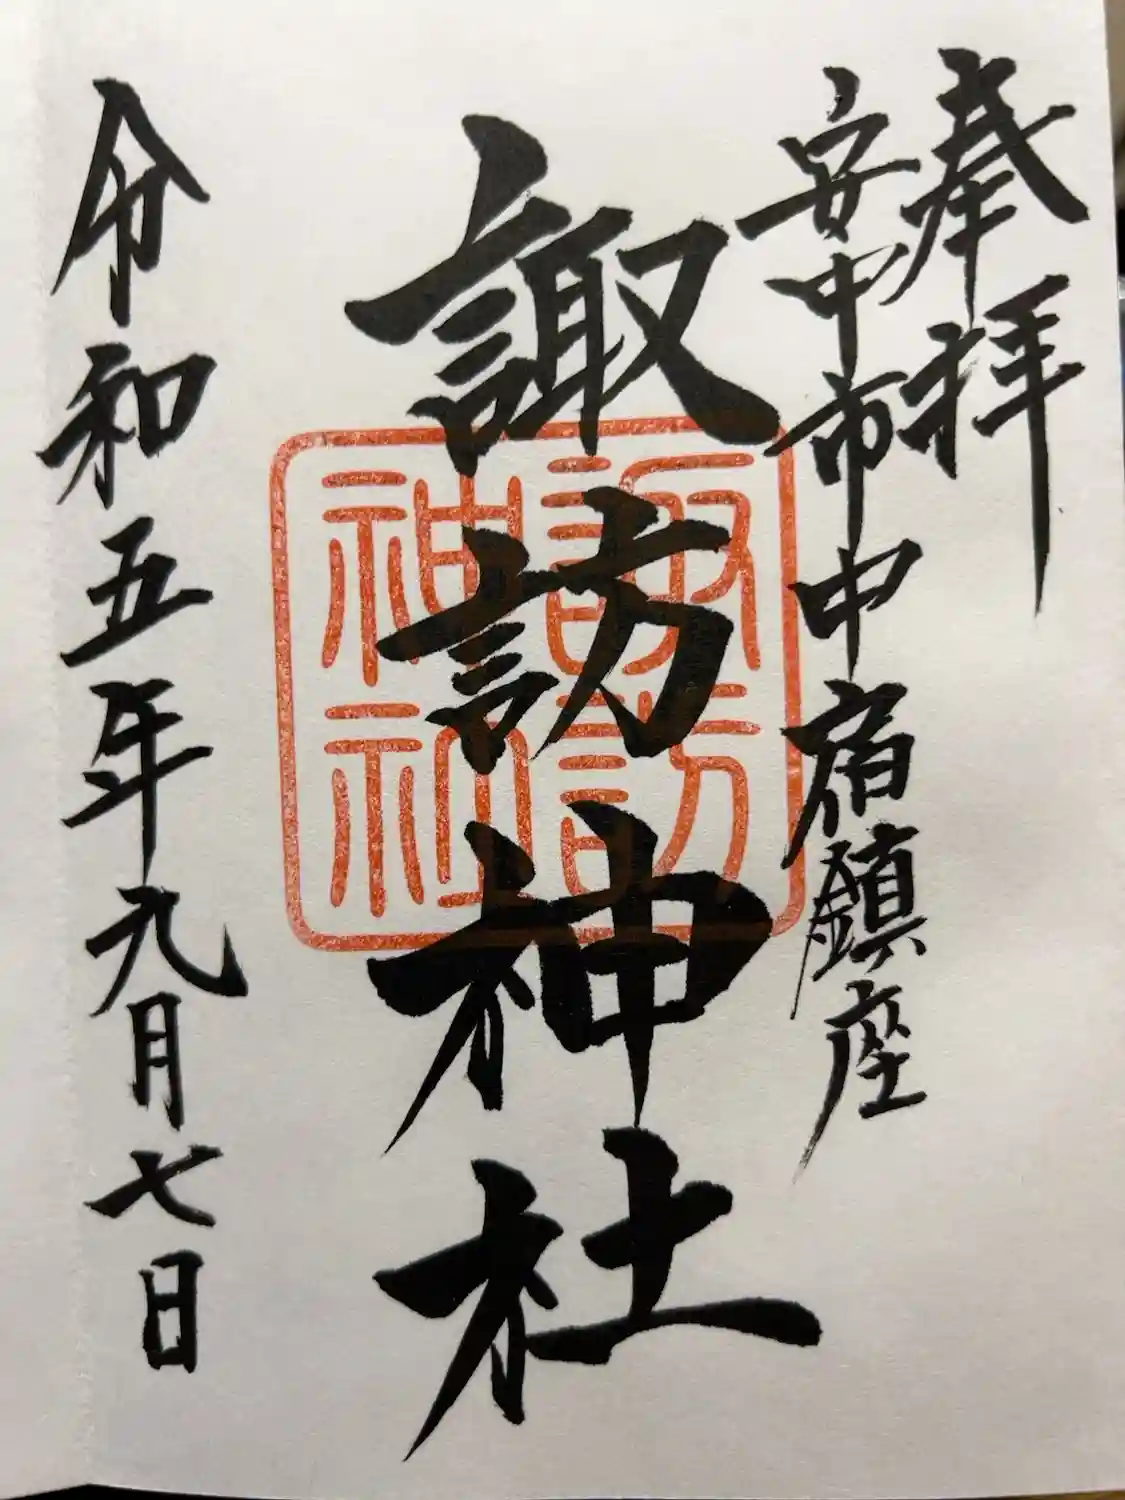 奉拝
安中市中宿鎮座
諏訪神社
諏訪
神社
令和五年九月七日